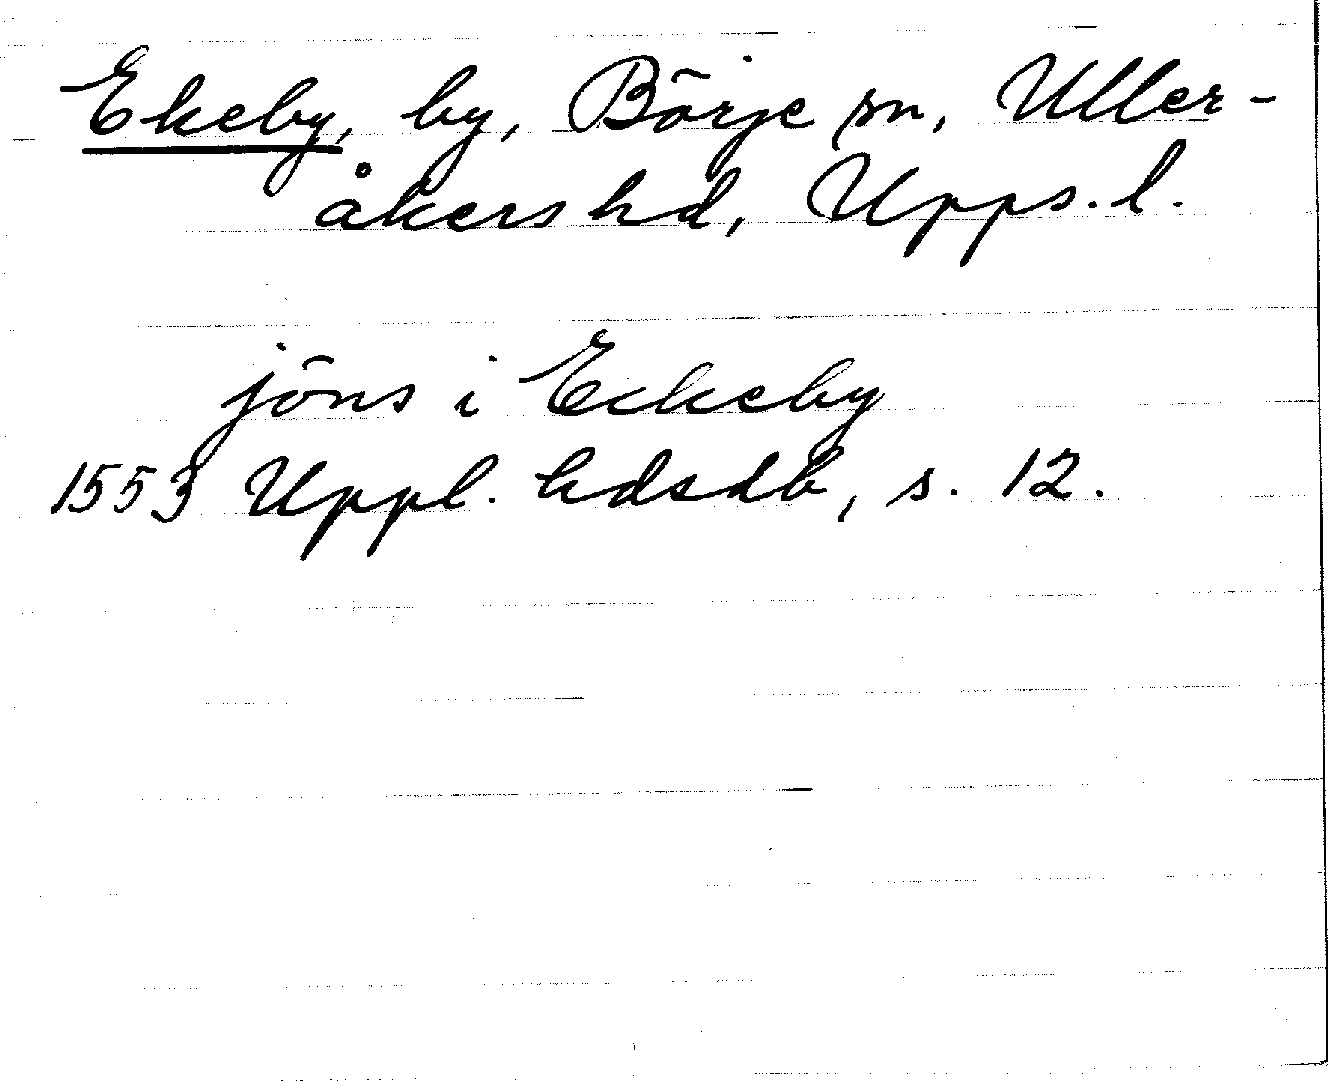 Ekeby, by, Börje sn, Uller-
åkers hd, Upps. l.
jöns i Eckeby
1553 Uppl. hdsdb, s. 12.